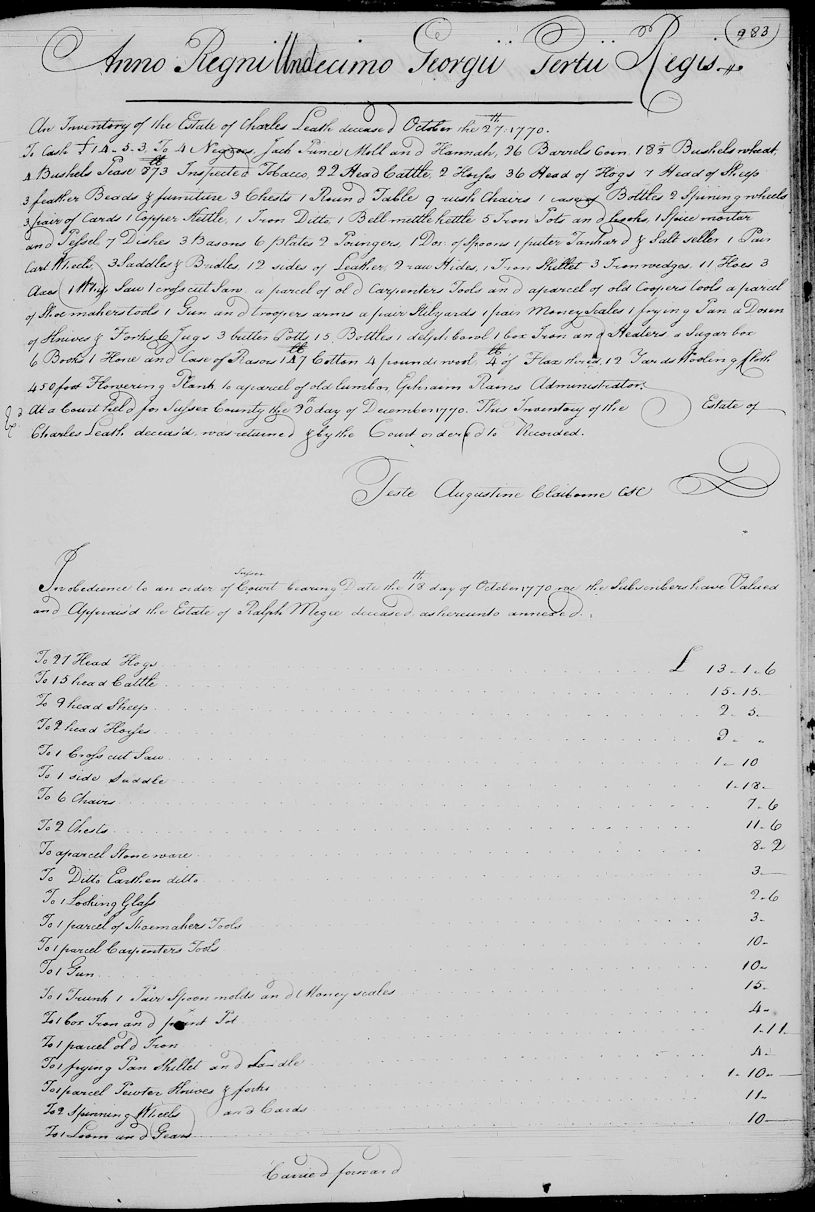 283
Anno Regni Undecimo Georgii Tertii Regis
An Inventory of the Estate of Charles Leath deceased October the 27th 1770.
To Cash £14..5..3. To 4 Negroes, Jack Prince Moll and Hannah, 26 Barrels Corn 18½ Bushels wheat,
4 Bushels Pease 873 lb Inspected Tobacco, 22 Head Cattle, 2 Horses 36 Head of Hogs 7 Head of Sheep
3 feather Beads & furniture 3 Chests 1 Round Table 9 rush Chairs 1 case of Bottles 2 Spining wheels
3 pair of Cards 1 Copper Kettle, 1 Iron Ditto, 1 Bell mettle kettle 5 Iron Pots and hooks, 1 Spice morter
and Pessel 7 Dishes 3 Basons 6 plates 2 Poringers, 1 Doz. of Spoons 1 puter Tankard & Salt seller 1 Pair
Cart Wheels, 3 Saddles & Bridles 12 sides of Leather, 2 raw Hides, 1 Iron Skillet 3 Iron wedges, 11 Hoes 3
Axes 1 Whip Saw 1 cross cut Saw, a parcel of old Carpenters Tools and a parcel of old Coopers tools a parcel
of Shoemakers tools 1 Gun and troopers arms a pair Stilyards 1 pair Money Scales 1 frying Pan a Dozen
of Knives & Forks 6 Jugs 3 butter Potts 15 Bottles 1 delph bowl 1 box Iron and Heaters a Sugar box
6 Books 1 Hone and Case of Rasors 147 lb Cotton 4 pounds wool, 4 lb of Flax 12 Yards Wooling Cloth
450 foot Flowering Plank to a parcel of old lumber, Ephraim Raines Administrator.
At a Court held for Sussex County the 20th day of December 1770. This Inventory of the Estate of
Charles Leath deceas'd, was returned & by the Court ordered to Recorded.
Teste Augustine Claiborne CSC
In obedience to an order of Sussex Court bearing Date the 18th day of October 1770 we the Subscribers have Valued
and Apprais'd the Estate of Ralph Megee deceased as hereunto annexed.
To 27 Head Hogs £ 13..1..6
To 15 head Cattle 15..15..
To 9 head Sheep 2..5..
To 2 head Horses
To 1 Cross cut Saw 1..10
To 1 side Saddle 1..18..
To 6 Chairs 7..6
To 2 Chests 11..6
To a parcel Stone ware 8..2
To Ditto Earthen ditto 3..
To 1 Looking Glass 2..6
To 1 parcel of Shoemakers Tools 3..
To 1 parcel Carpenters Tools 10..
To 1 Gun 10..
To 1 Trunk 1 Pair Spoon molds and Money scales 15..
To 1 box Iron and Pot 4..
To 1 parcel old Iron 1..11..
To 1 frying Pan Skillet and Ladle 4..
To 1 parcel Pewter Knives & forks 1..10..
To 2 Spinning Wheels and Cards 11..
To 1 Loom and Gears 10..
Carried forward